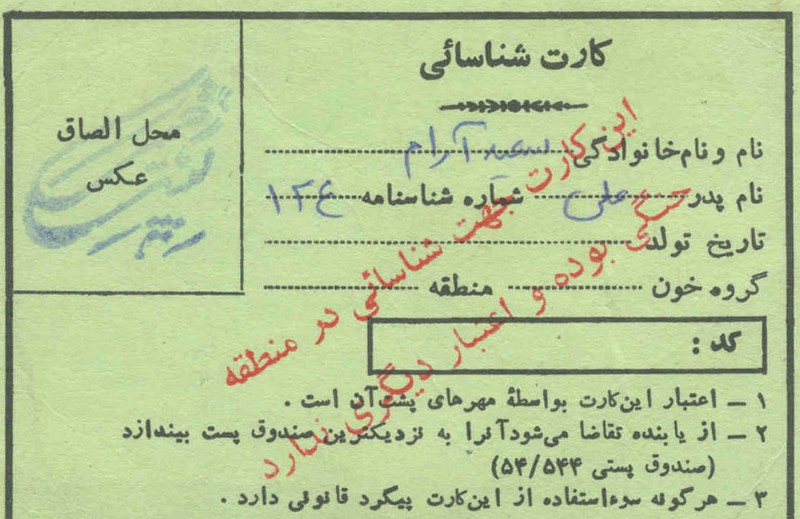 کارت شناسائی
محل الصاق
عکس
نام و نام‌خانوادگی سعید آرام
نام پدر علی شماره شناسنامه ۱۲۴
تاریخ تولد
گروه خون منطقه
کد :
۱ – اعتبار این‌کارت بواسطهٔ مهرهای پشت‌آن است .
۲ – از یابنده تقاضا می‌شود آنرا به نزدیکترین صندوق پست بیندازد
(صندوق پستی ۵۴/۵۴۴)
۳ – هرگونه سوء‌استفاده از این‌کارت پیگرد قانونی دارد .
این کارت جهت شناسائی در منطقه
جنگی بوده و اعتبار دیگری ندارد